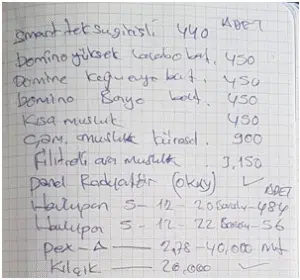 Smart tek su girişli 440 ADET
Domino yüksek lavabo bat. 450
Domino Kuğu eviye bat. 450
Domino Banyo bat. 450
Kısa musluk 450
Çam. musluk küresel. 900
Filitreli ara musluk 3,150
Panel Radyatör (okey) ✓
Halupon 5-12-20 Bandı-484 ADET
Halupon 5-12-22 Bandı-56
Pex-A 2,78-40,000 Mt
Kılçık 20,000 ✓